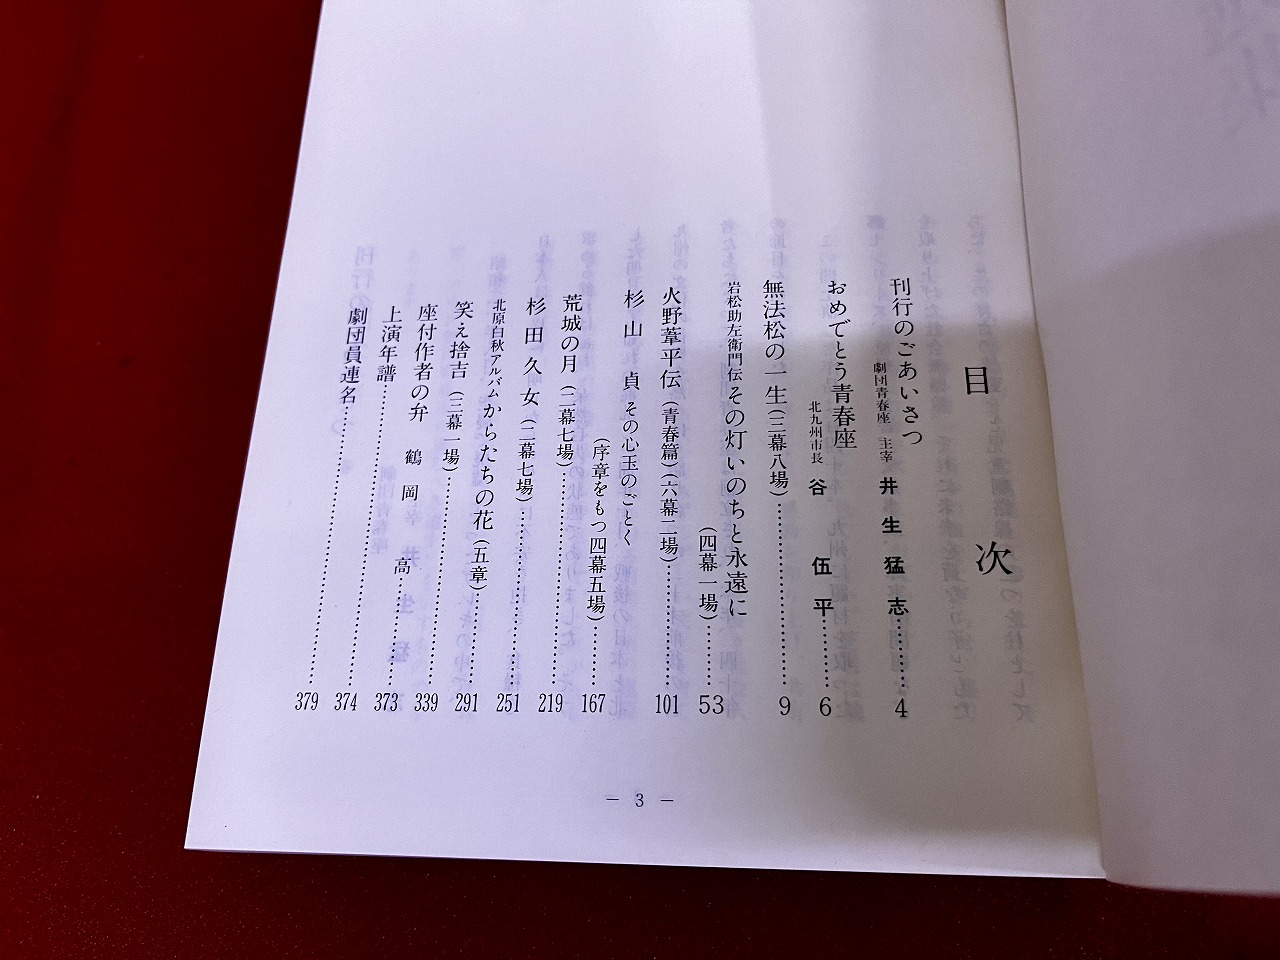 目次
刊行のごあいさつ
劇団青春座 主宰 井生猛志………4
おめでとう青春座
北九州市長 谷 伍平………6
無法松の一生（三幕八場）………9
岩松助左衛門伝 その灯いのちと永遠に
（四幕一場）………53
火野葦平伝（青春篇）（六幕二場）………101
杉山 貞 その心玉のごとく
（序章をもつ四幕五場）………167
荒城の月（二幕七場）………219
杉田久女（二幕七場）………251
北原白秋アルバム からたちの花（五章）………291
笑え捨吉（三幕一場）………339
座付作者の弁 鶴岡 高………373
上演年譜………374
劇団員連名………379
— 3 —